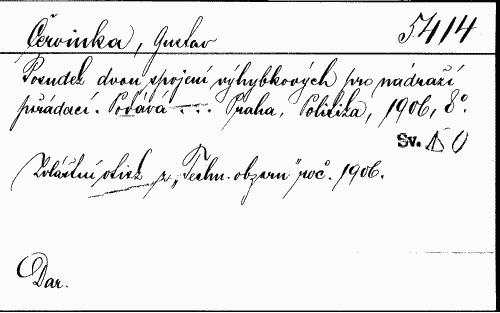 Červinka, Gustav 5414
Posudek dvou spojení výhybkových pro nádraží
přádací. Podává ... Praha, Politika, 1906, 8°.
Sv. 50
Zvláštní otisk z „Techn. obzoru" roč. 1906.
Dar.